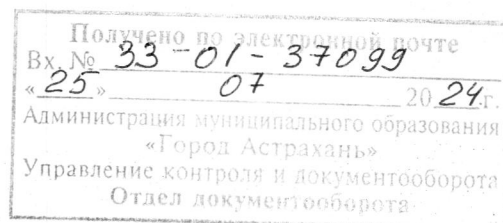 Получено по электронной почте
Вх. № 33-01-37099
«25» 07 2024 г.
Администрация муниципального образования
«Город Астрахань»
Управление контроля и документооборота
Отдел документооборота